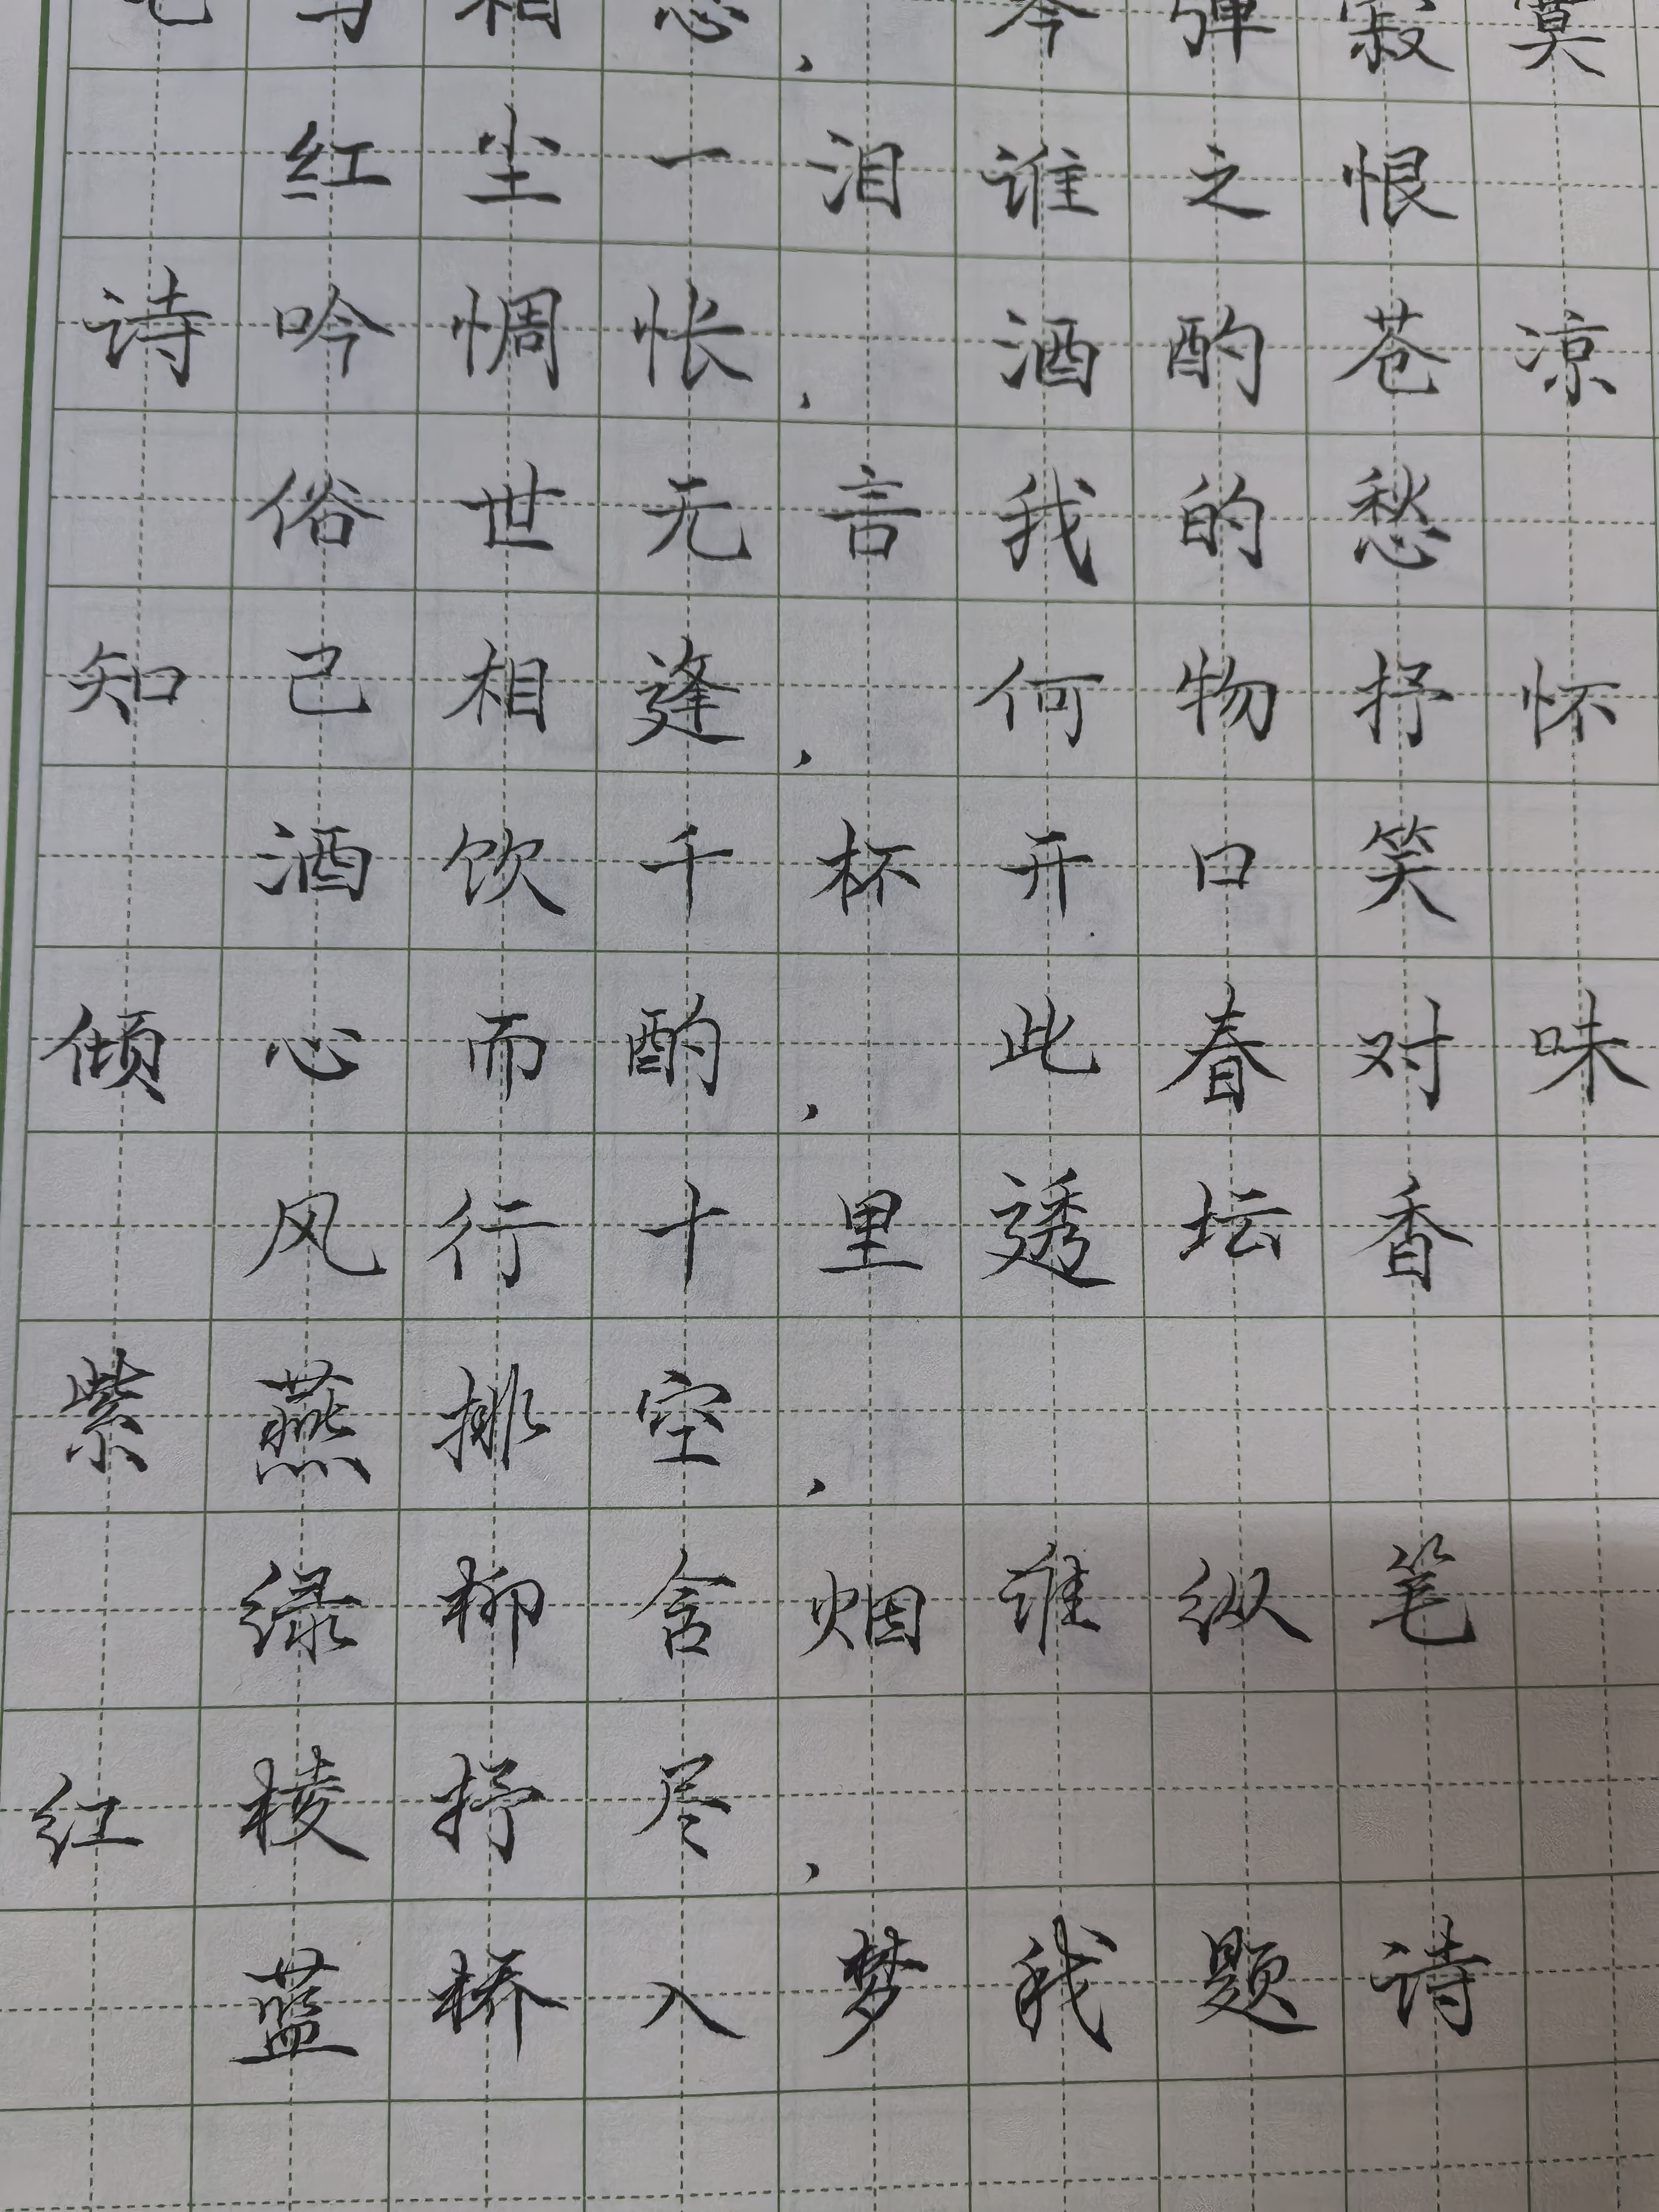 相思，琴弹寂寞
红尘一泪谁之恨
诗吟惆怅，酒酌苍凉
俗世无言我的愁
知己相逢，何物抒怀
酒饮千杯开口笑
倾心而酌，此春对味
风行十里透坛香
紫燕排空，
绿柳含烟谁纵笔
红棱抒尽，
蓝桥入梦我题诗